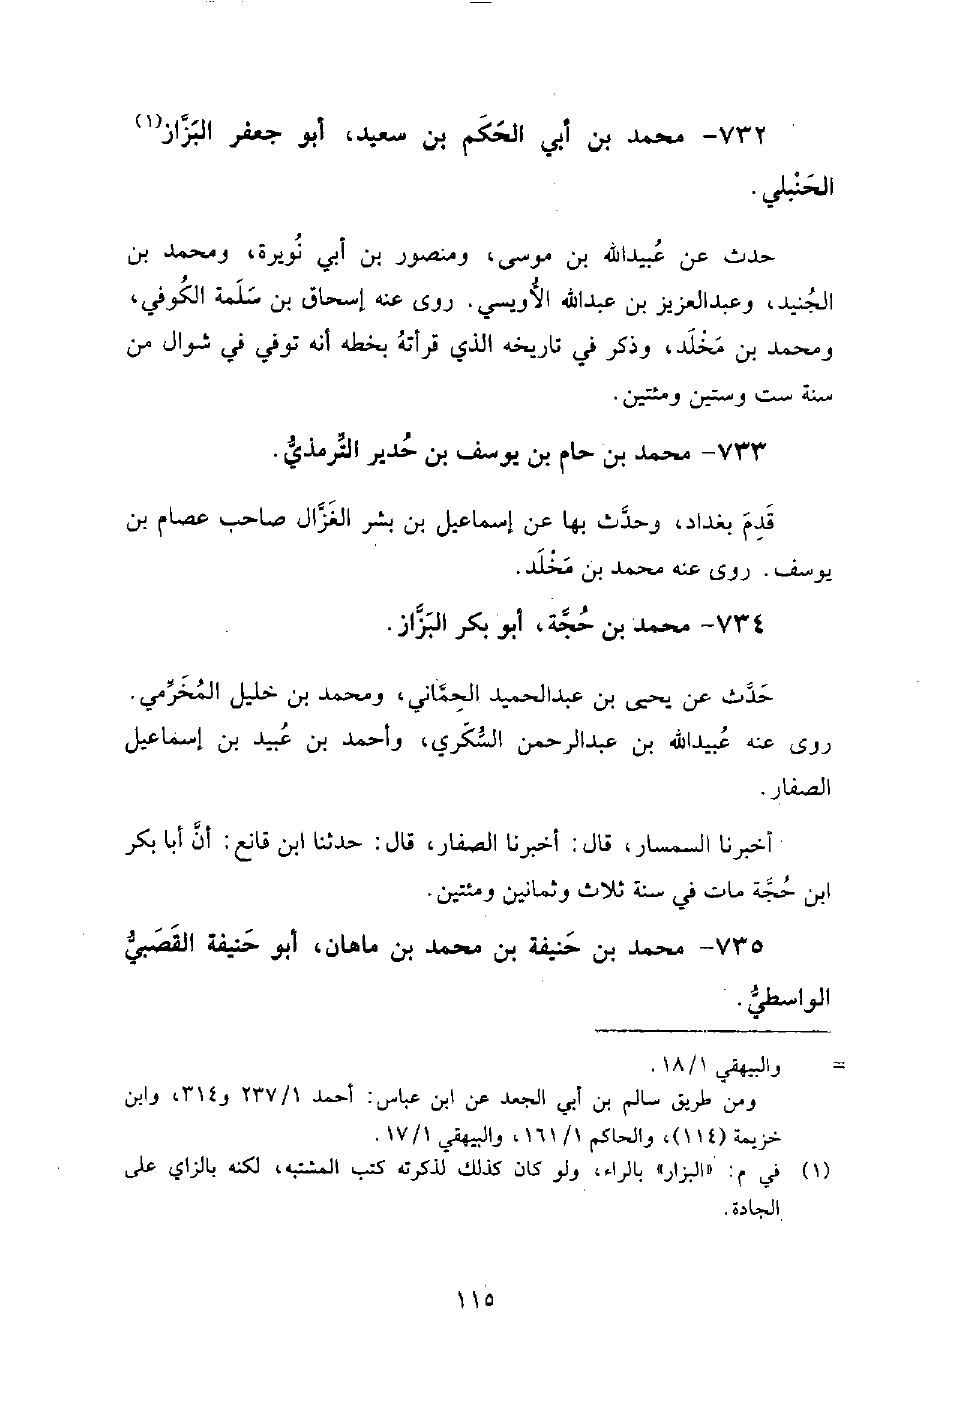 ٧٣٢- محمد بن أبي الحَكَم بن سعيد، أبو جعفر البَزَّاز(١)
الحَنْبلي.
حدث عن عُبيدالله بن موسى، ومنصور بن أبي نُويرة، ومحمد بن
الجُنيد، وعبدالعزيز بن عبدالله الأُويسي. روى عنه إسحاق بن سَلَمة الكُوفي،
ومحمد بن مَخْلَد، وذكر في تاريخه الذي قرأتهُ بخطه أنه توفي في شوال من
سنة ست وستين ومئتين.
٧٣٣- محمد بن حام بن يوسف بن حُدير التِّرمذيُّ.
قَدِمَ بغداد، وحدَّث بها عن إسماعيل بن بشر الغَزَّال صاحب عصام بن
يوسف. روى عنه محمد بن مَخْلَد.
٧٣٤- محمد بن حُجَّة، أبو بكر البَزَّاز.
حَدَّث عن يحيى بن عبدالحميد الحِمَّاني، ومحمد بن خليل المُخَرِّمي.
روى عنه عُبيدالله بن عبدالرحمن السُّكَّري، وأحمد بن عُبيد بن إسماعيل
الصفار.
أخبرنا السمسار، قال: أخبرنا الصفار، قال: حدثنا ابن قانع: أنَّ أبا بكر
ابن حُجَّة مات في سنة ثلاث وثمانين ومئتين.
٧٣٥- محمد بن حَنيفة بن محمد بن ماهان، أبو حَنيفة القَصَبيُّ
الواسطيُّ.
= والبيهقي ١/ ١٨.
ومن طريق سالم بن أبي الجعد عن ابن عباس: أحمد ١/ ٢٣٧ و٣١٤، وابن
خزيمة (١١٤)، والحاكم ١/ ١٦١، والبيهقي ١/ ١٧.
(١) في م: «البزار» بالراء، ولو كان كذلك لذكرته كتب المشتبه، لكنه بالزاي على
الجادة.
١١٥